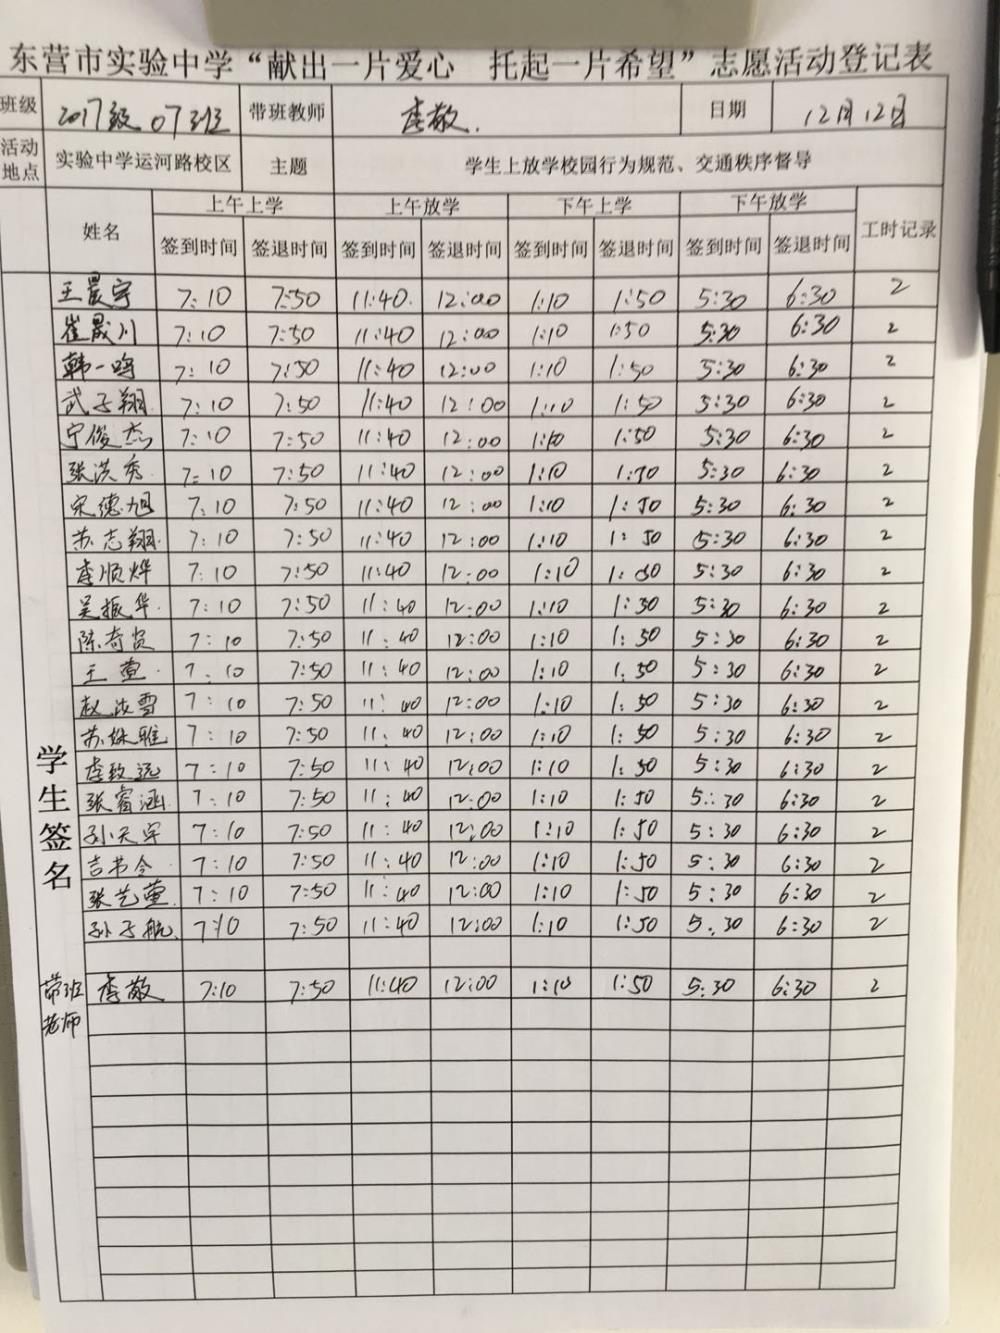 东营市实验中学“献出一片爱心 托起一片希望”志愿活动登记表
班级 2017级07班 带班教师 李敬. 日期 12月12日
活动地点 实验中学运河路校区 主题 学生上放学校园行为规范、交通秩序督导
姓名 上午上学 上午放学 下午上学 下午放学 工时记录
签到时间 签退时间 签到时间 签退时间 签到时间 签退时间 签到时间 签退时间
学生签名
王晨宇 7:10 7:50 11:40 12:00 1:10 1:50 5:30 6:30 2
崔晟川 7:10 7:50 11:40 12:00 1:10 1:50 5:30 6:30 2
韩一鸣 7:10 7:50 11:40 12:00 1:10 1:50 5:30 6:30 2
武子翔 7:10 7:50 11:40 12:00 1:10 1:50 5:30 6:30 2
宁俊杰 7:10 7:50 11:40 12:00 1:10 1:50 5:30 6:30 2
张洪秀 7:10 7:50 11:40 12:00 1:10 1:50 5:30 6:30 2
宋德旭 7:10 7:50 11:40 12:00 1:10 1:50 5:30 6:30 2
苏志翔 7:10 7:50 11:40 12:00 1:10 1:50 5:30 6:30 2
李顺烨 7:10 7:50 11:40 12:00 1:10 1:50 5:30 6:30 2
吴振华 7:10 7:50 11:40 12:00 1:10 1:50 5:30 6:30 2
陈奇 7:10 7:50 11:40 12:00 1:10 1:50 5:30 6:30 2
王萱 7:10 7:50 11:40 12:00 1:10 1:50 5:30 6:30 2
赵 雪 7:10 7:50 11:40 12:00 1:10 1:50 5:30 6:30 2
苏 雅 7:10 7:50 11:40 12:00 1:10 1:50 5:30 6:30 2
李致远 7:10 7:50 11:40 12:00 1:10 1:50 5:30 6:30 2
张睿涵 7:10 7:50 11:40 12:00 1:10 1:50 5:30 6:30 2
孙天宇 7:10 7:50 11:40 12:00 1:10 1:50 5:30 6:30 2
吉书令 7:10 7:50 11:40 12:00 1:10 1:50 5:30 6:30 2
张艺萱 7:10 7:50 11:40 12:00 1:10 1:50 5:30 6:30 2
孙子航 7:10 7:50 11:40 12:00 1:10 1:50 5:30 6:30 2
带班老师 李敬 7:10 7:50 11:40 12:00 1:10 1:50 5:30 6:30 2